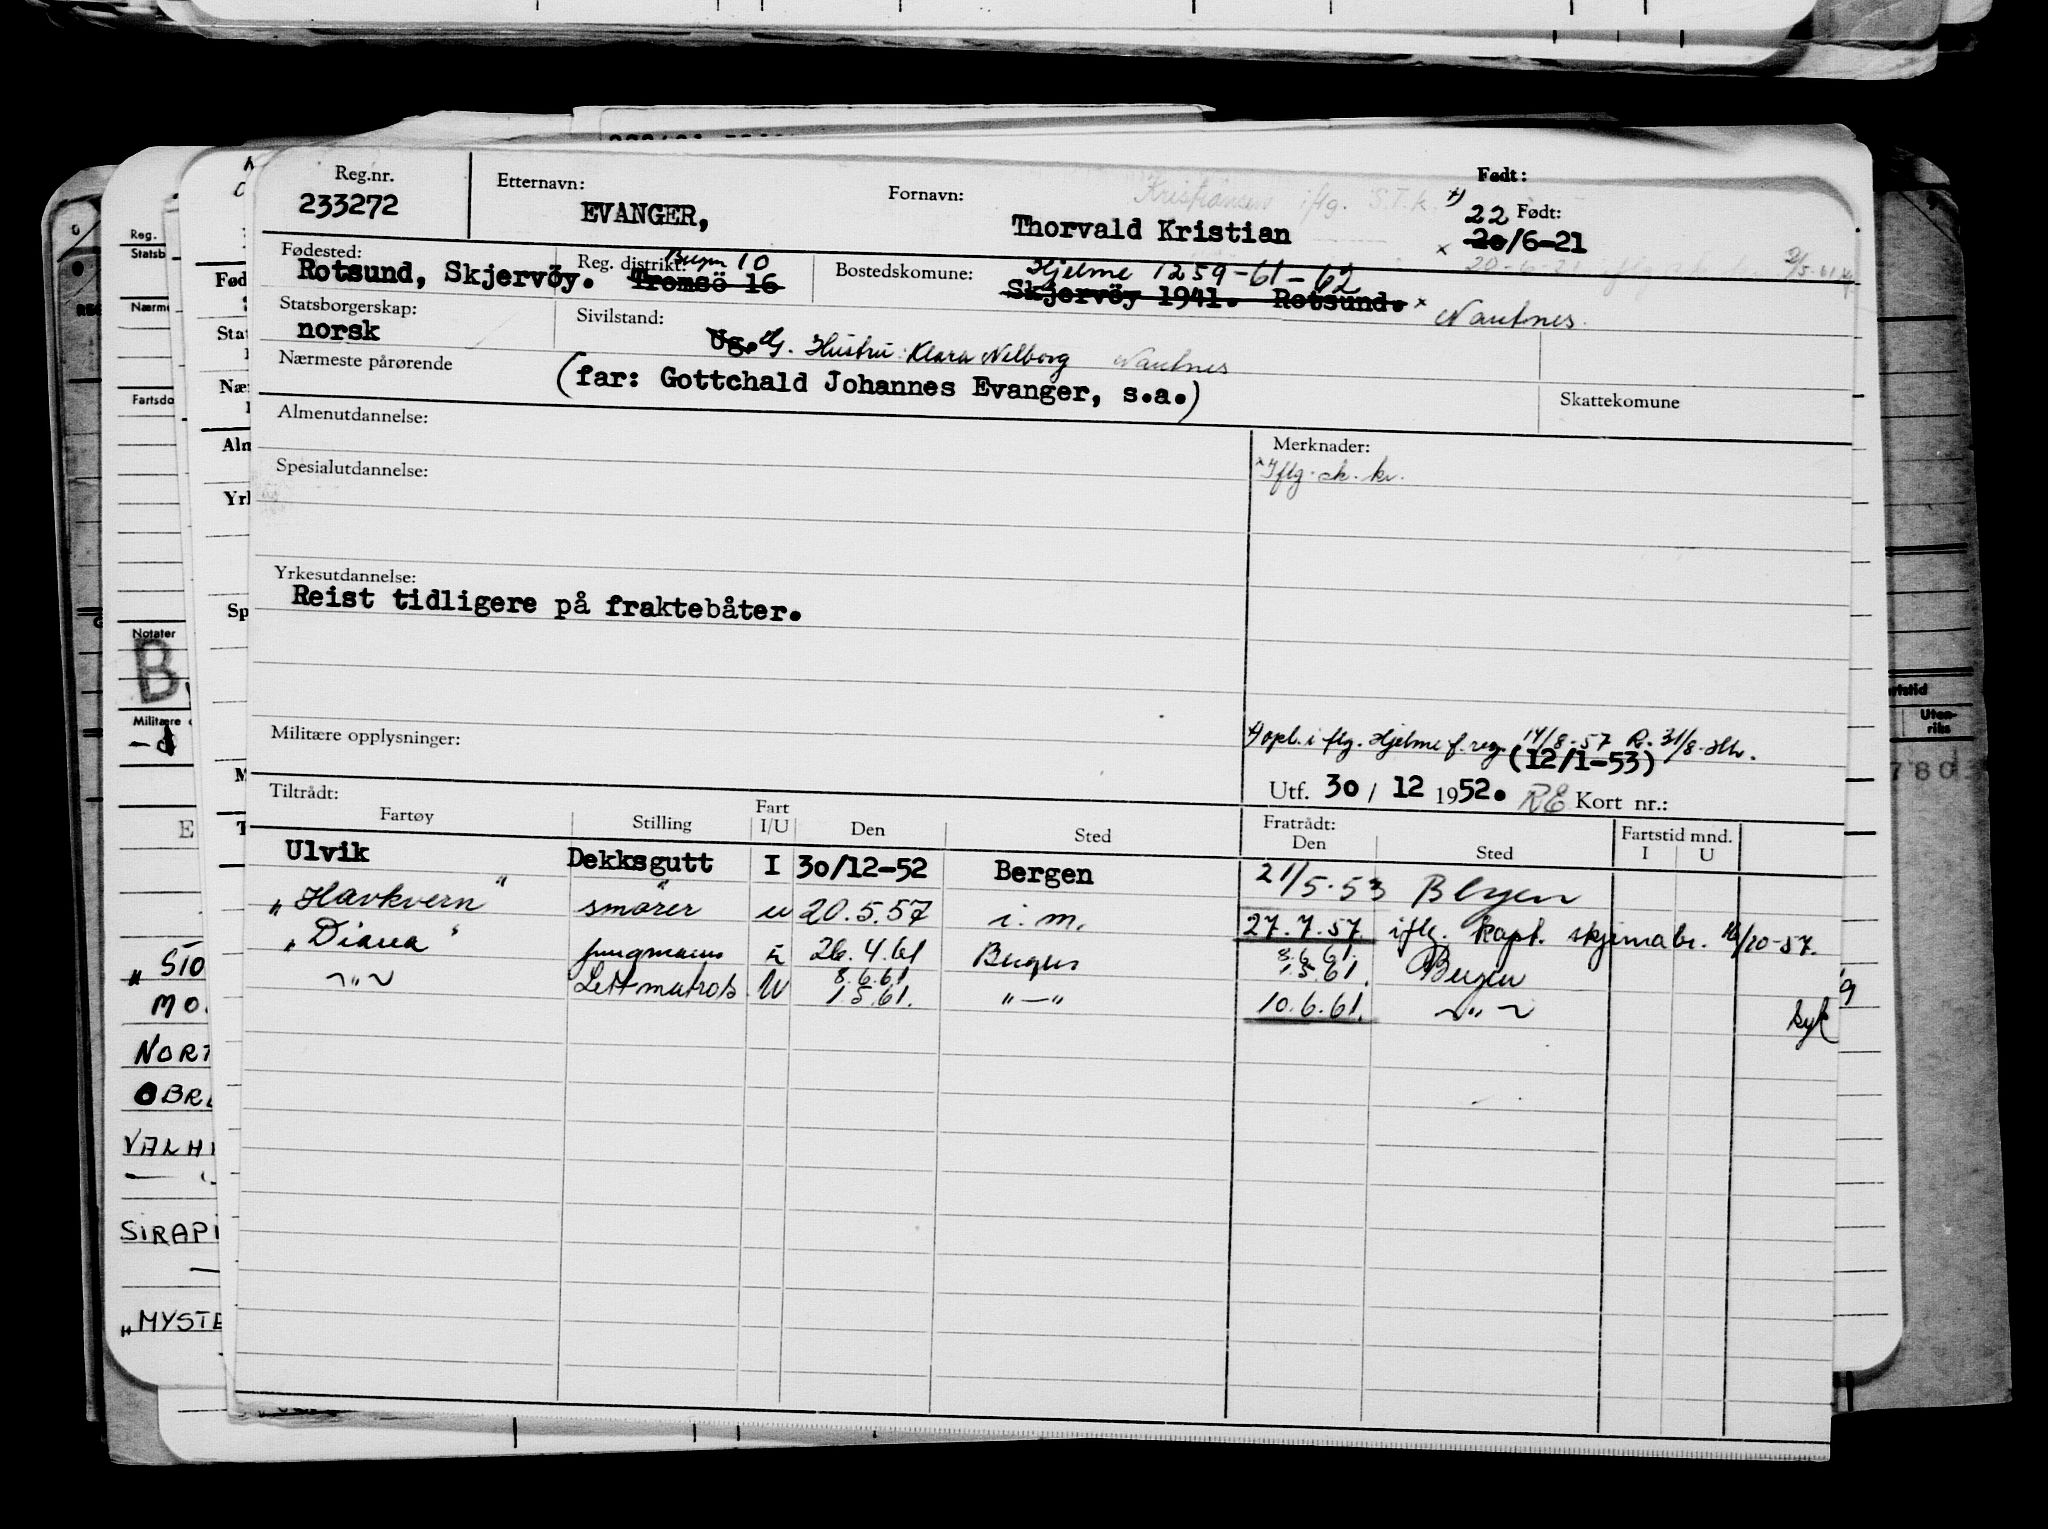 Reg.nr. Etternavn: Fornavn: Kristiansen iflg. S.T.k. Født:
233272 EVANGER, Thorvald Kristian 22 Født:
x 20/6-21
Fødested: Reg. distrikt: Bergen 10 Bostedskomune: Hjelme 1259-61-62
Rotsund, Skjervöy. Tromsö 16 Skjervöy 1941. Rotsund. x Nautnes.
Statsborgerskap: Sivilstand:
norsk Ug. G. Hustru: Klara Nelborg Nautnes
Nærmeste pårørende (far: Gottchald Johannes Evanger, s.a.)
Skattekomune
Almenutdannelse: Merknader:
Spesialutdannelse: x Iflg. sk. kv.
Yrkesutdannelse:
Reist tidligere på fraktebåter.
Militære opplysninger: opl. i flg. Hjelme f. reg. 14/8-57 R. 31/8
(12/1-53)
Utf. 30/ 12 1952. RE Kort nr.:
Tiltrådt: Fratrådt: Fartstid mnd.
Fartøy Stilling Fart I/U Den Sted Den Sted I U
Ulvik Dekksgutt I 30/12-52 Bergen 21/5-53 Bergen
"Havkvern" smører u 20.5.57 i.m. 27.7.57 iflg. kapt. skjemabr. 16/10-57.
"Diana" jungmann 26.4.61 Bergen 8.6.61 1.5.61. Bergen
~"~ Lettmatros U 8.6.61 1.5.61. "—" 10.6.61. ~"~
kyk
Reg.
Statsb
Nærme
Fartsdo
Notater
B
Militære
Fød
Stat
Næ
Alm
Yrl
Sp
M
T
E
"STO
MO
NORT
OBRE
VALH
SIRAPI
"MYSTE
rtstid
Uten-
riks
780
9